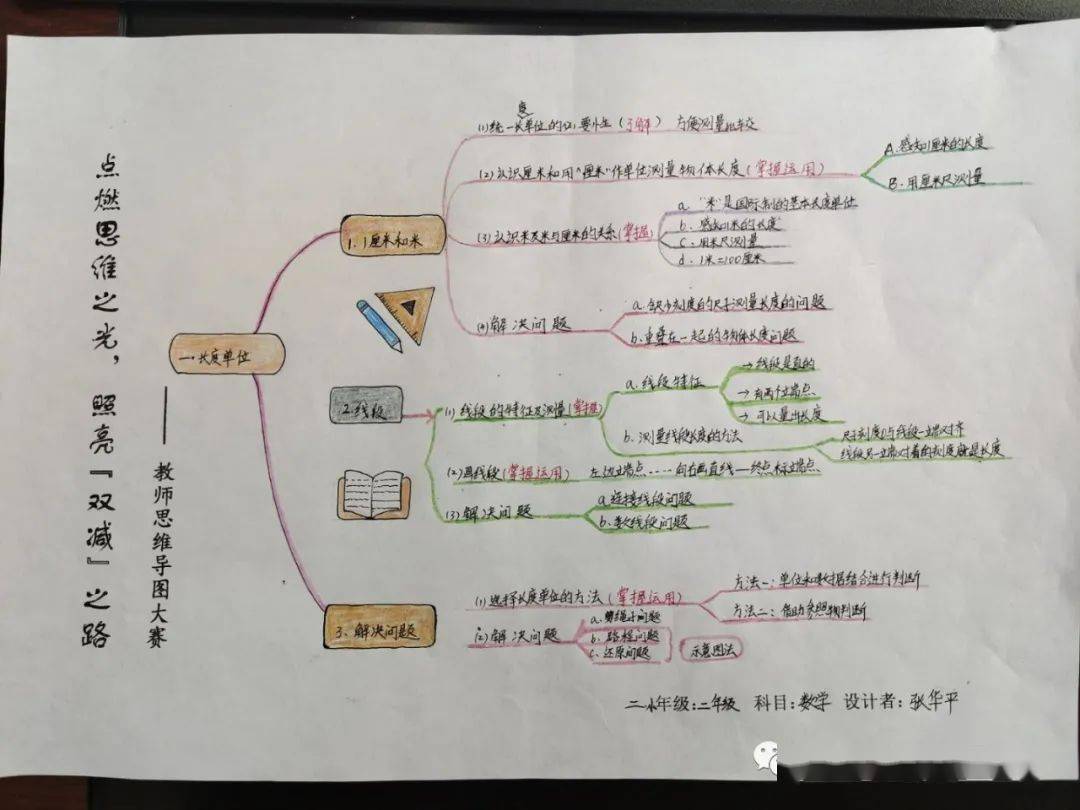 点燃思维之光，照亮『双减』之路
——教师思维导图大赛
一、长度单位
1.1厘米和米
(1)统一长度单位的必要性（了解）方便测量和交
(2)认识厘米和用"厘米"作单位测量物体长度（掌握运用）
A.感知1厘米的长度
B.用厘米尺测量
(3)认识米及米与厘米的关系（掌握）
a."米"是国际制的基本长度单位
b.感知1米的长度
c.用米尺测量
d.1米=100厘米
(4)解决问题
a.缺少刻度的尺子测量长度的问题
b.重叠在一起的物体长度问题
2.线段
(1)线段的特征及测量（掌握）
a.线段特征
→线段是直的
→有两个端点
→可以量出长度
b.测量线段长度的方法
尺子刻度0与线段一端对齐
线段另一端对着的刻度就是长度
(2)画线段（掌握运用）左边端点……向右画直线—终点标端点
(3)解决问题
a.连接线段问题
b.数线段问题
3、解决问题
(1)选择长度单位的方法（掌握运用）
方法一：单位和数据结合进行判断
方法二：借助参照物判断
(2)解决问题
a.剪绳子问题
b.路程问题
c.还原问题
示意图法
二小年级：二年级 科目：数学 设计者：张华平